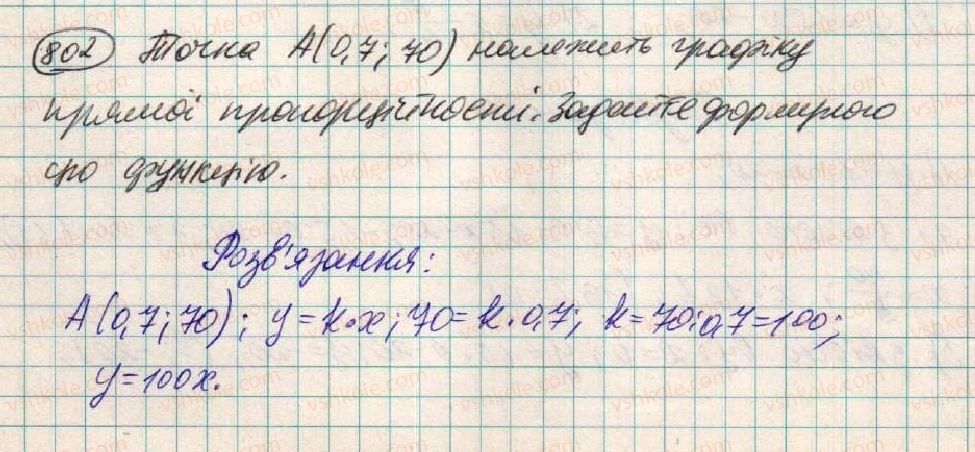 802 Точка А(0,7; 70) належить графіку
прямої пропорційності. Задайте формулою
цю функцію.
Розв'язання:
А(0,7; 70); y = k·x; 70 = k·0,7; k = 70:0,7 = 100;
y = 100x.